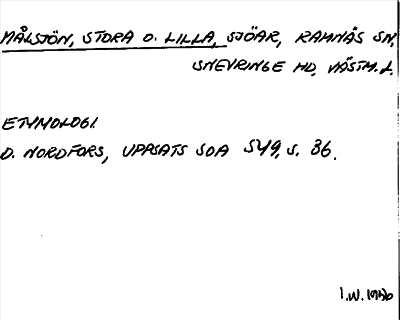 MÅLSJÖN, STORA O. LILLA, SJÖAR, RAMNÄS SN,
SNEVRINGE HD, VÄSTM. L.
ETYMOLOGI.
D. NORDFORS, UPPSATS SOA 549, S. 36.
I.W. 1936